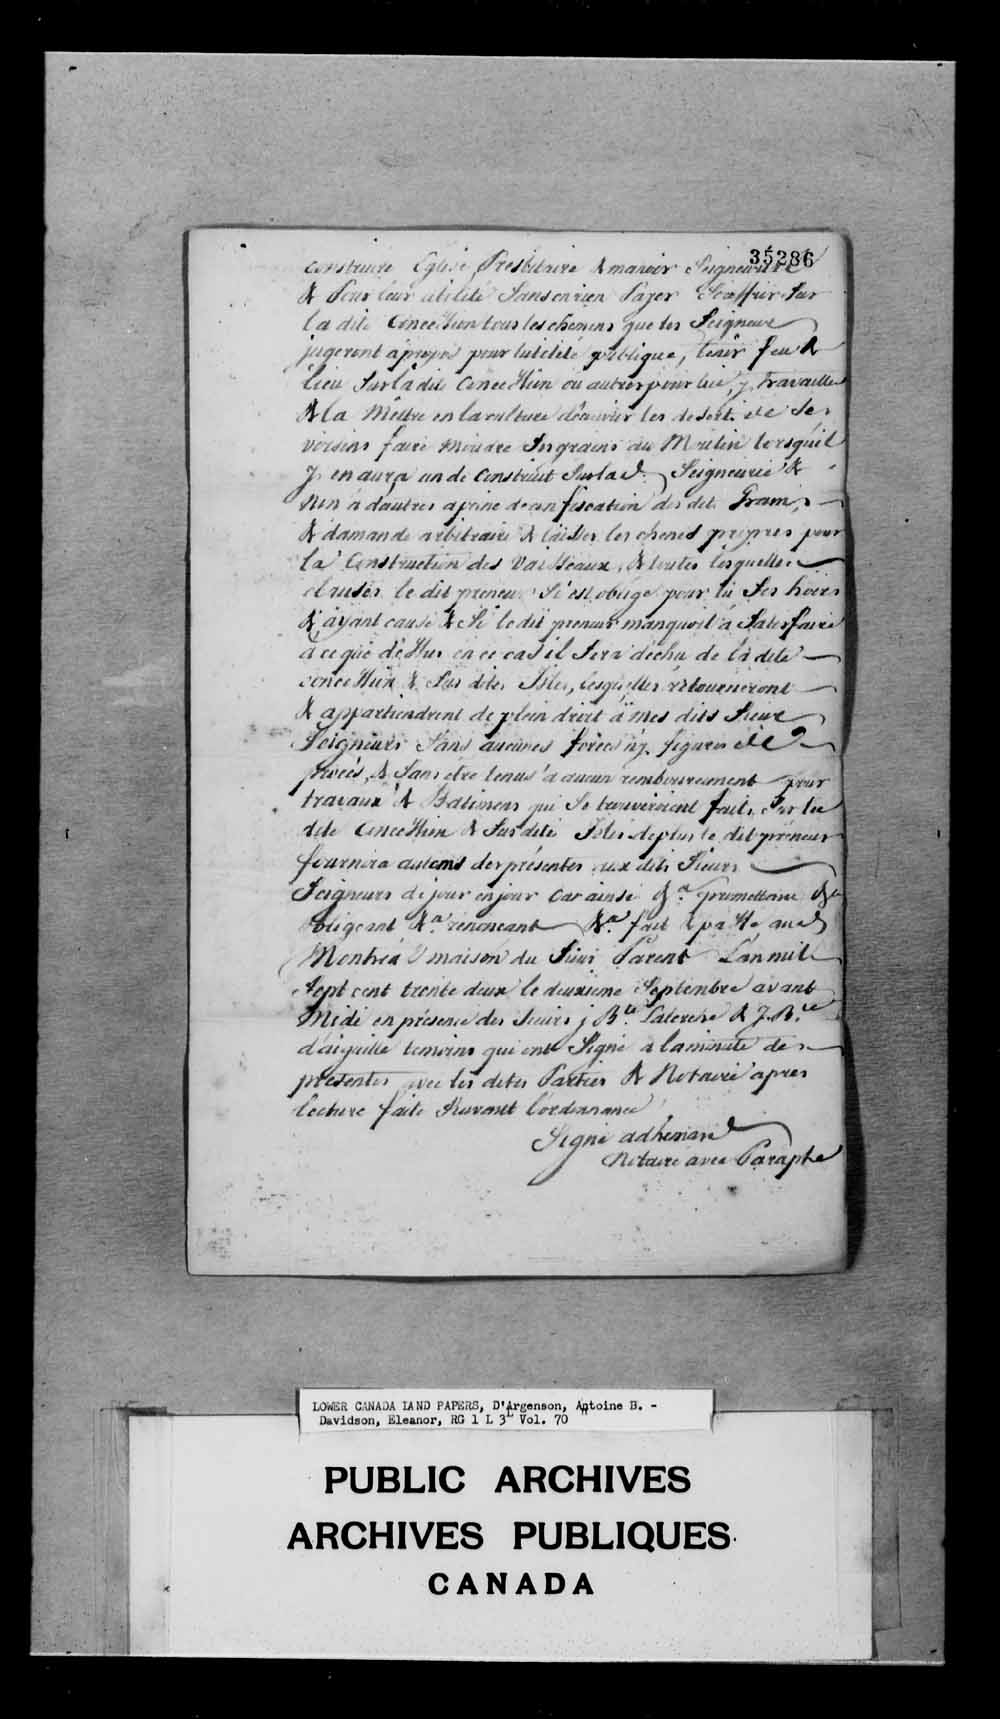 35286
Construire Eglise, Presbitaire & manoir Seigneurial
& Pour leur utilité Sans en rien Payer Souffrir Sur
la dite Concession tous les chemins que les Seigneur
jugeront àpropos pour lutilité publique, tenir feu &
lieu Sur la dite Concession ou autres pour lui, y travailler
& la Mettre en la culture découvrir les desert de Ses
voisins faire moudre Ses grains au Moulin lorsquil
y en aura un de Construit Sur la de Seigneurie &
non à dautres apeine de confiscation des dits Grains
& damande arbitraire & laisser les chenes propres pour
la Construction des Vaisseaux, & toutes lesquelles
clauses le dit preneur S'est obligé pour lui Ses hoirs
& ayant cause & Si le dit preneur manquoit à Satisfaire
à ce que dessus en ce cas il Sera déchu de la dite
concession & Sus dites Isles, lesquelles retourneront
& appartiendront de plein droit à mes dits Sieur
Seigneurs Sans aucunes forces ny figures de
procès, & Sans etre tenus à aucun remboursement pour
travaux & Batimens qui Se trouveroient faits Sur la
dite Concession & Sus dite Isles deplus le dit preneur
fournira autant des présentes aux dits Sieurs
Seigneurs de jour en jour Car ainsi &a. promettant &a
obligeant &a. renoncant &a. fait & passé aud
Montréal maison du Sieur Parent L'an mil
Sept cent trente deux le deuxieme Septembre avant
Midi en présence des Sieurs j Bte. Laterche & J. Bte
d'aiguille temoins qui ont Signé à la minute des
présentes avec les dites Parties & Notaire apres
lecture faite Suivant l'ordonnance
Signé adhemard
Notaire avec Paraphe
LOWER CANADA LAND PAPERS, D'Argenson, Antoine B. -
Davidson, Eleanor, RG 1 L 3L Vol. 70
PUBLIC ARCHIVES
ARCHIVES PUBLIQUES
CANADA